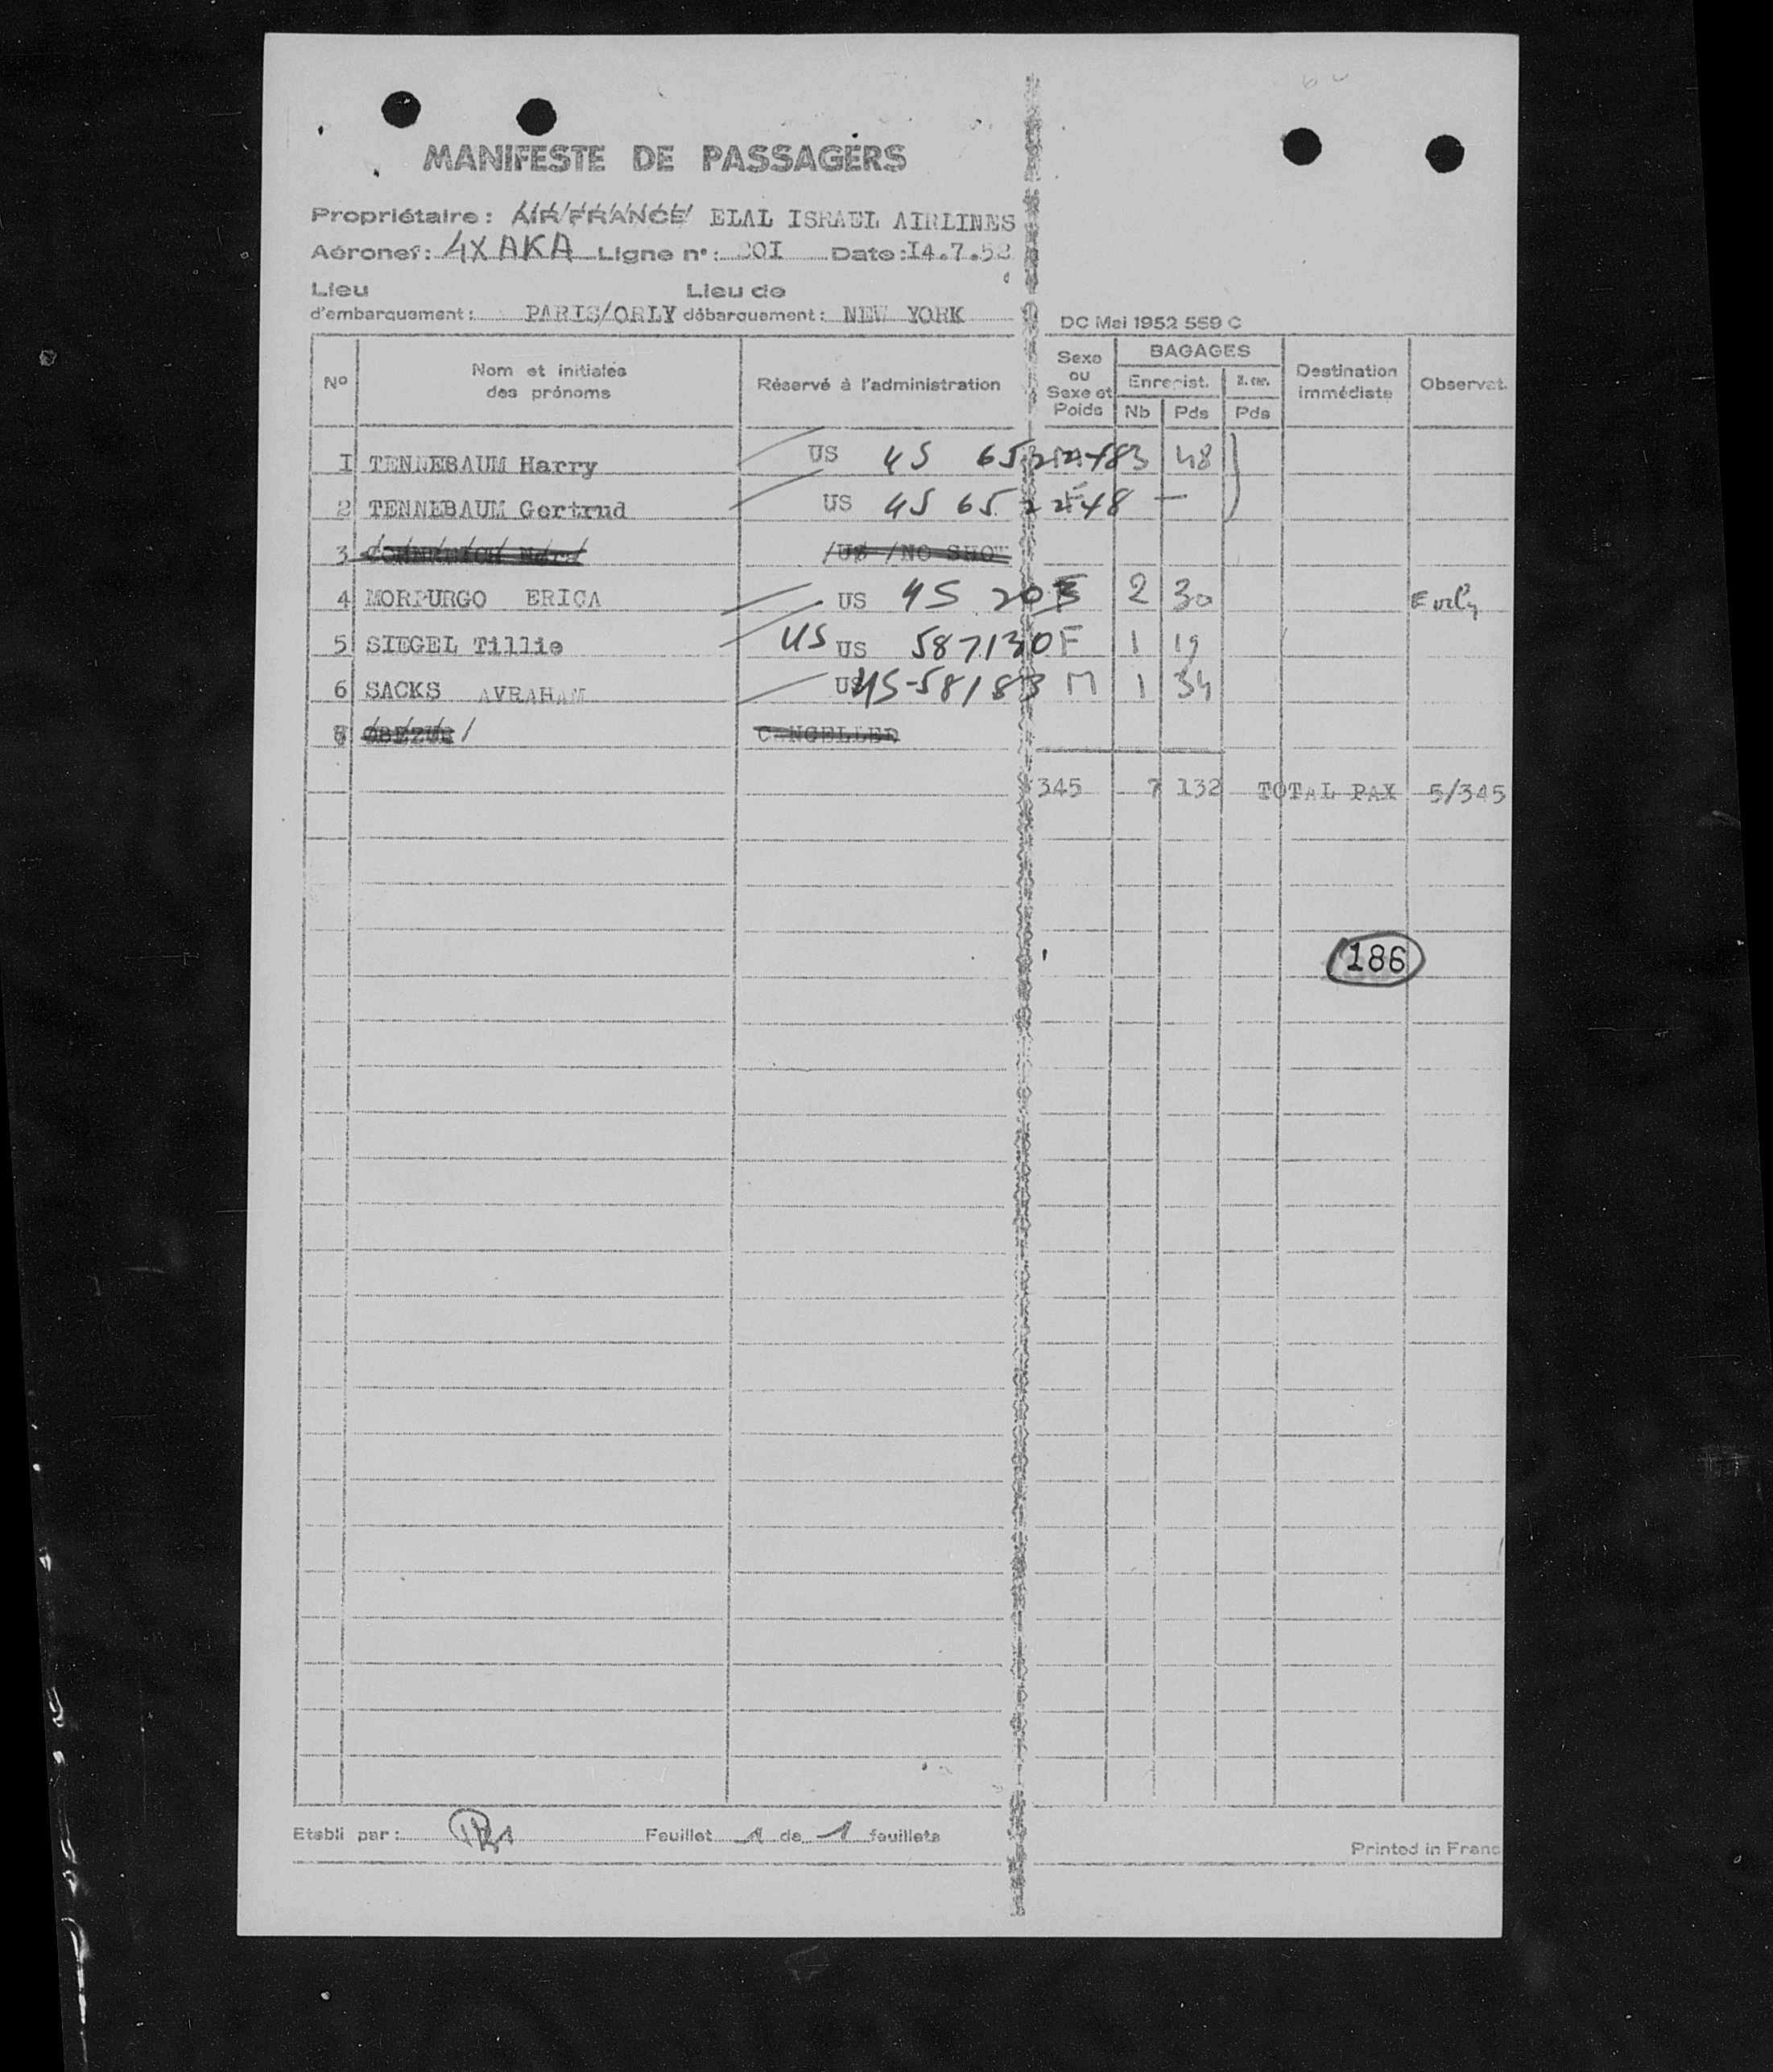 MANIFESTE DE PASSAGERS
Propriétaire: AIR FRANCE ELAL ISRAEL AIRLINES
Aéronef: 4XAKA Ligne n°: 20I Date: I4.7.52
Lieu d'embarquement: PARIS/ORLY Lieu de débarquement: NEW YORK
DC Mai 1952 559 C
N° Nom et initiales des prénoms Réservé à l'administration Sexe ou Sexe et Poids BAGAGES Enregist. Nb Pds Pds Destination immédiate Observat.
I TENNEBAUM Harry US US 48
2 TENNEBAUM Gertrud US US 65 —
3 /US /NO SHOW
4 MORPURGO ERICA US US 2 30
5 SIEGEL Tillie US US 587130 F 1 19
6 SACKS AVRAHAM US US-58183 M 1 34
CANCELLED
345 7 132 TOTAL PAX 5/345
186
Etabli par: Feuillet 1 de 1 feuillets
Printed in Franc